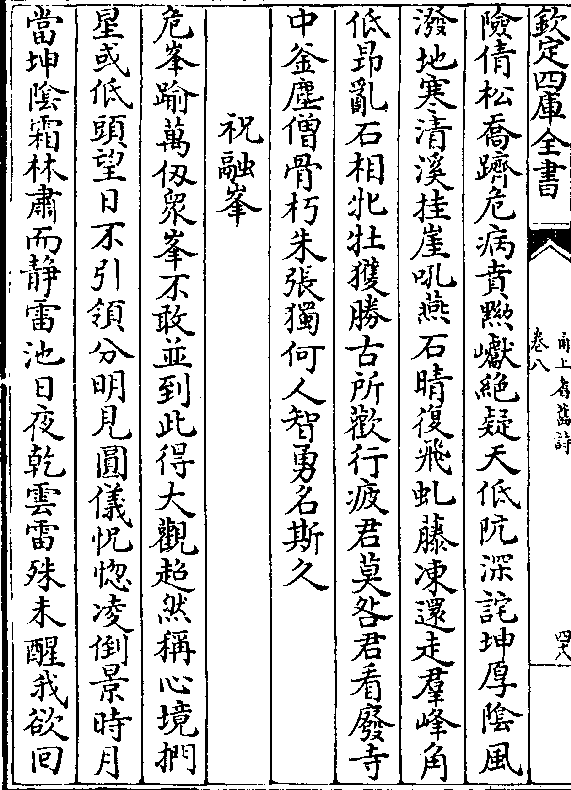 欽定四庫全書
甬上耆舊詩
卷八
四八
險倩松喬躋危病賁黥巘絶疑天低阬深詫坤厚陰風
潑地寒清溪挂崖吼燕石晴復飛虬藤凍還走羣峰角
低昂亂石相牝牡獲勝古所歡行疲君莫咎君看廢寺
中釜塵僧骨朽朱張獨何人智勇名斯久
祝融峯
危峯踰萬仭衆峯不敢並到此得大觀超然稱心境捫
星或低頭望日不引領分明見圓儀怳惚凌倒景時月
當坤陰霜林肅而靜雷池日夜乾雲雷殊未醒我欲回